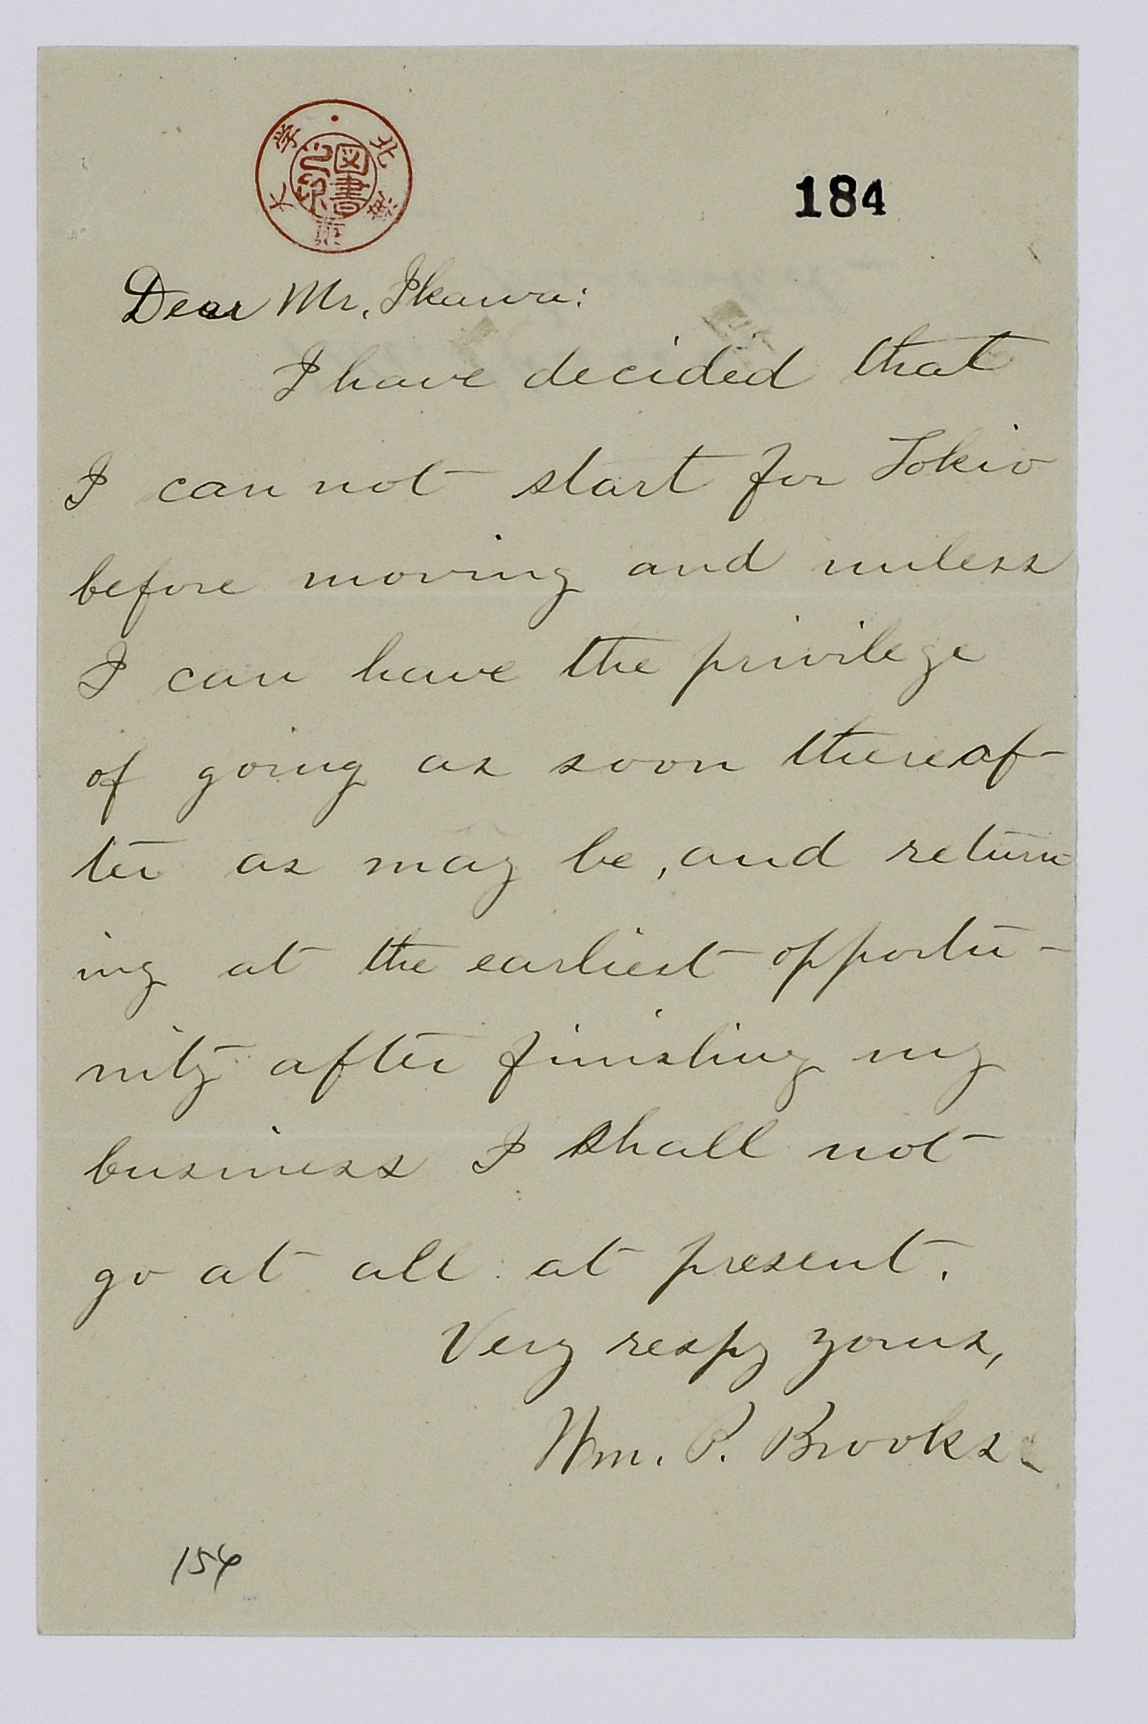 北海道大学
図書之印
184
Dear Mr. Ikawa:
I have decided that
I can not start for Tokio
before moving and unless
I can have the privilege
of going as soon thereaf-
ter as may be, and return
ing at the earliest opportu-
nity after finishing my
business I shall not
go at all at present.
Very respy yours,
Wm. P. Brooks
154